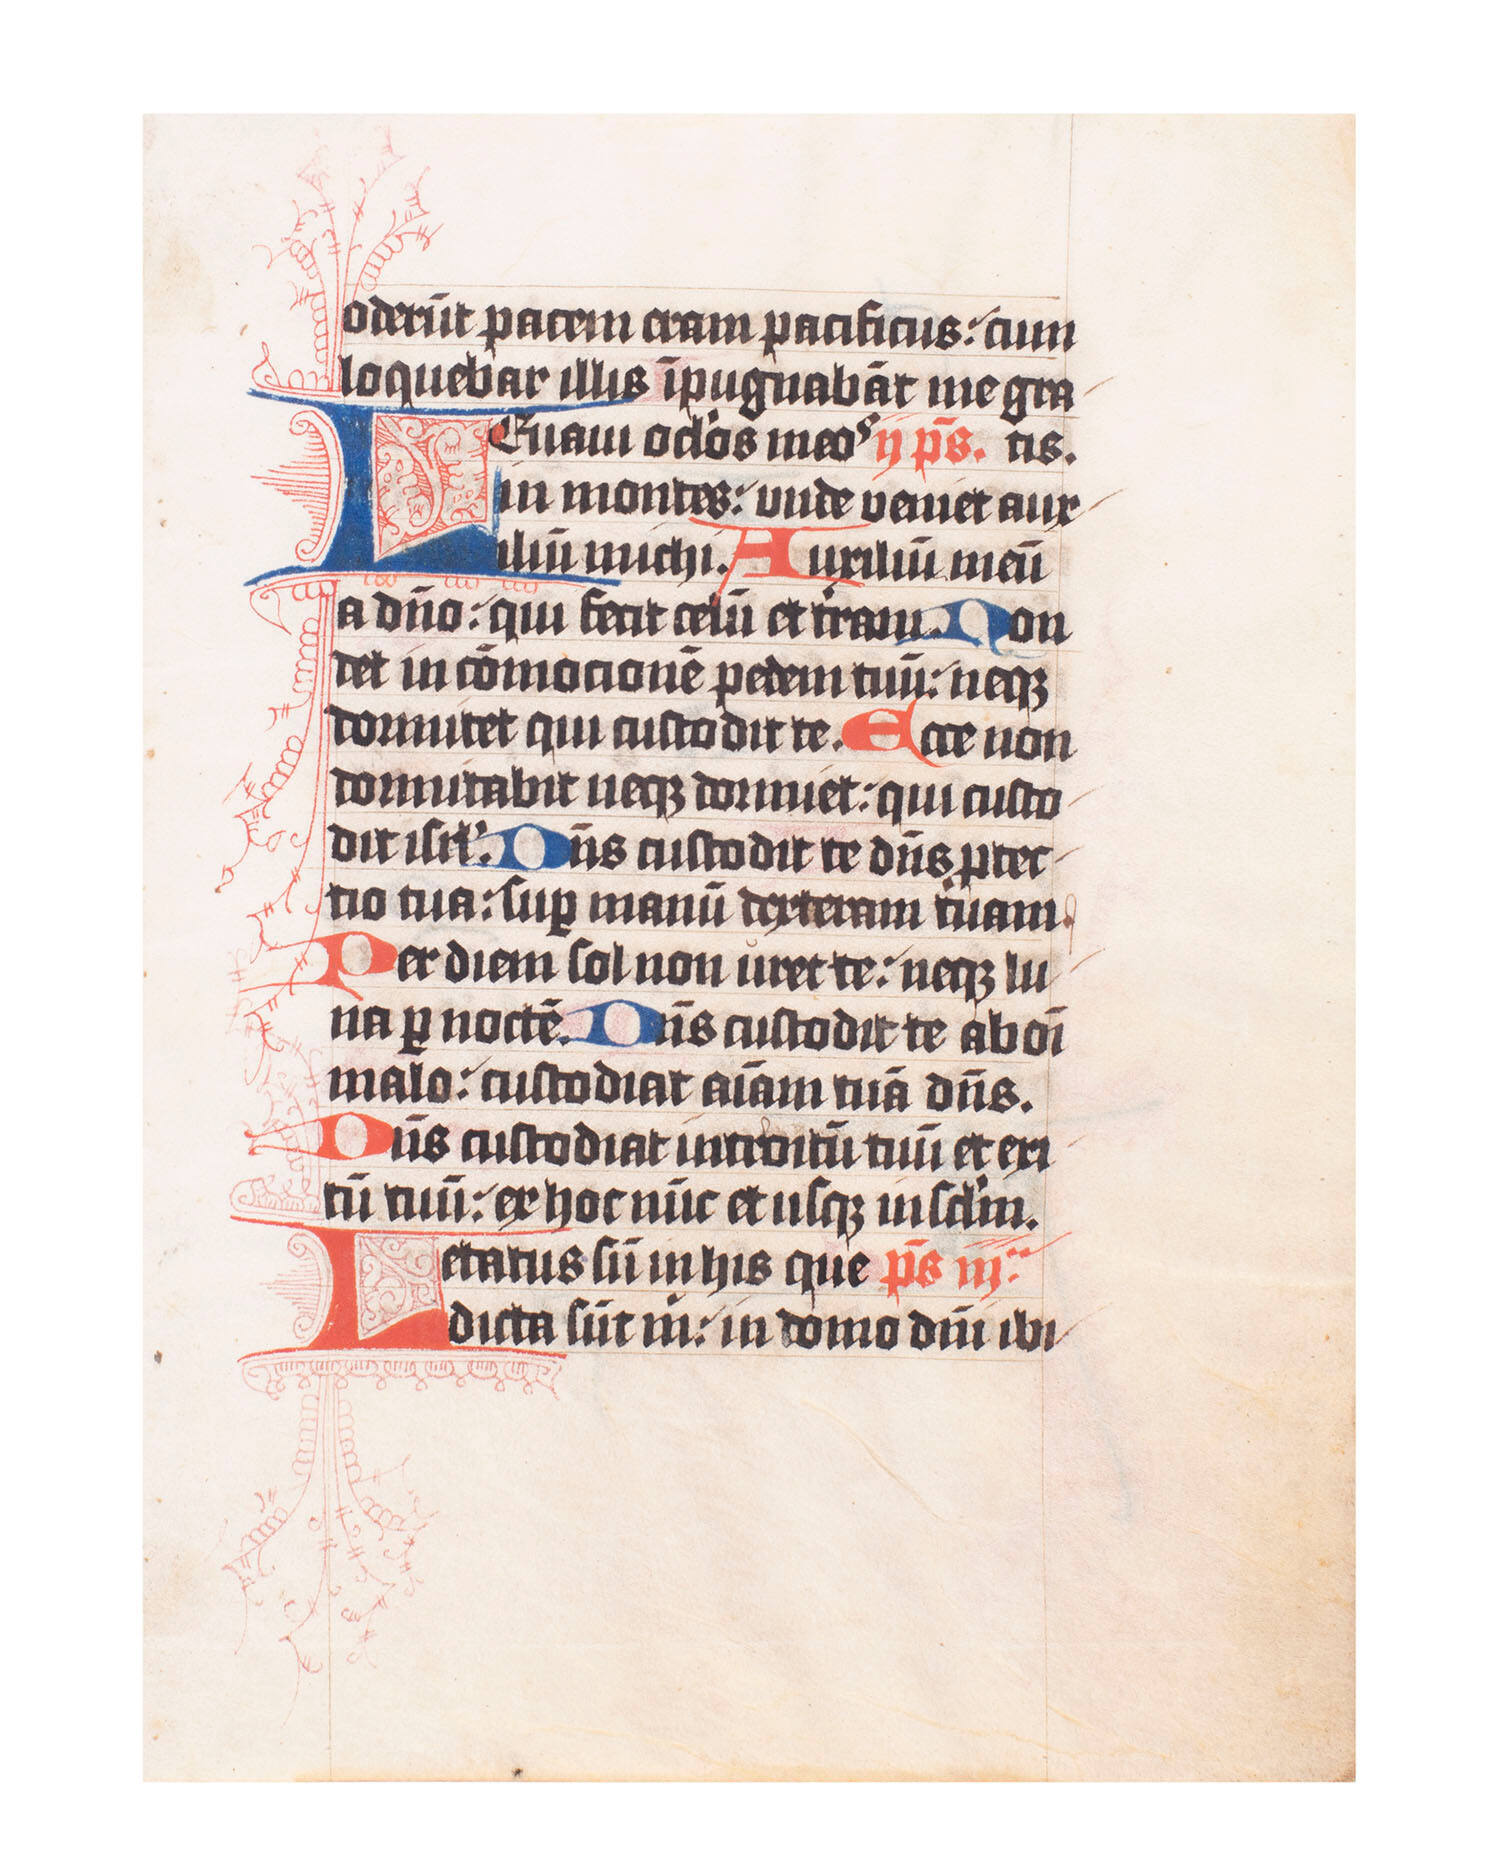 oderūt pacem eram pacificus: cum
loquebar illis īpugnabāt me gra
LEuaui oclōs meos ij ps. tis.
in montes: vnde veniet aux
iliū michi. Auxiliū meū
a dn̄o: qui fecit celū et trram. Non
det in cōmocionē pedem tuū: neqꝫ
dormitet qui custodit te. Ecce non
dormitabit neqꝫ dormiet: qui custo
dit isrl'. Dn̄s custodit te dn̄s ꝓtec
tio tua: suꝑ manū dexteram tuam.
Per diem sol non uret te: neqꝫ lu
na ꝑ noctē. Dn̄s custodit te ab oī
malo: custodiat aīam tuā dn̄s.
Dn̄s custodiat introitū tuū et exi
tū tuū: ex hoc nūc et usqꝫ in sclm̄.
Letatus sū in his que ps iij
dicta sūt m̄: in domo dn̄i ibi